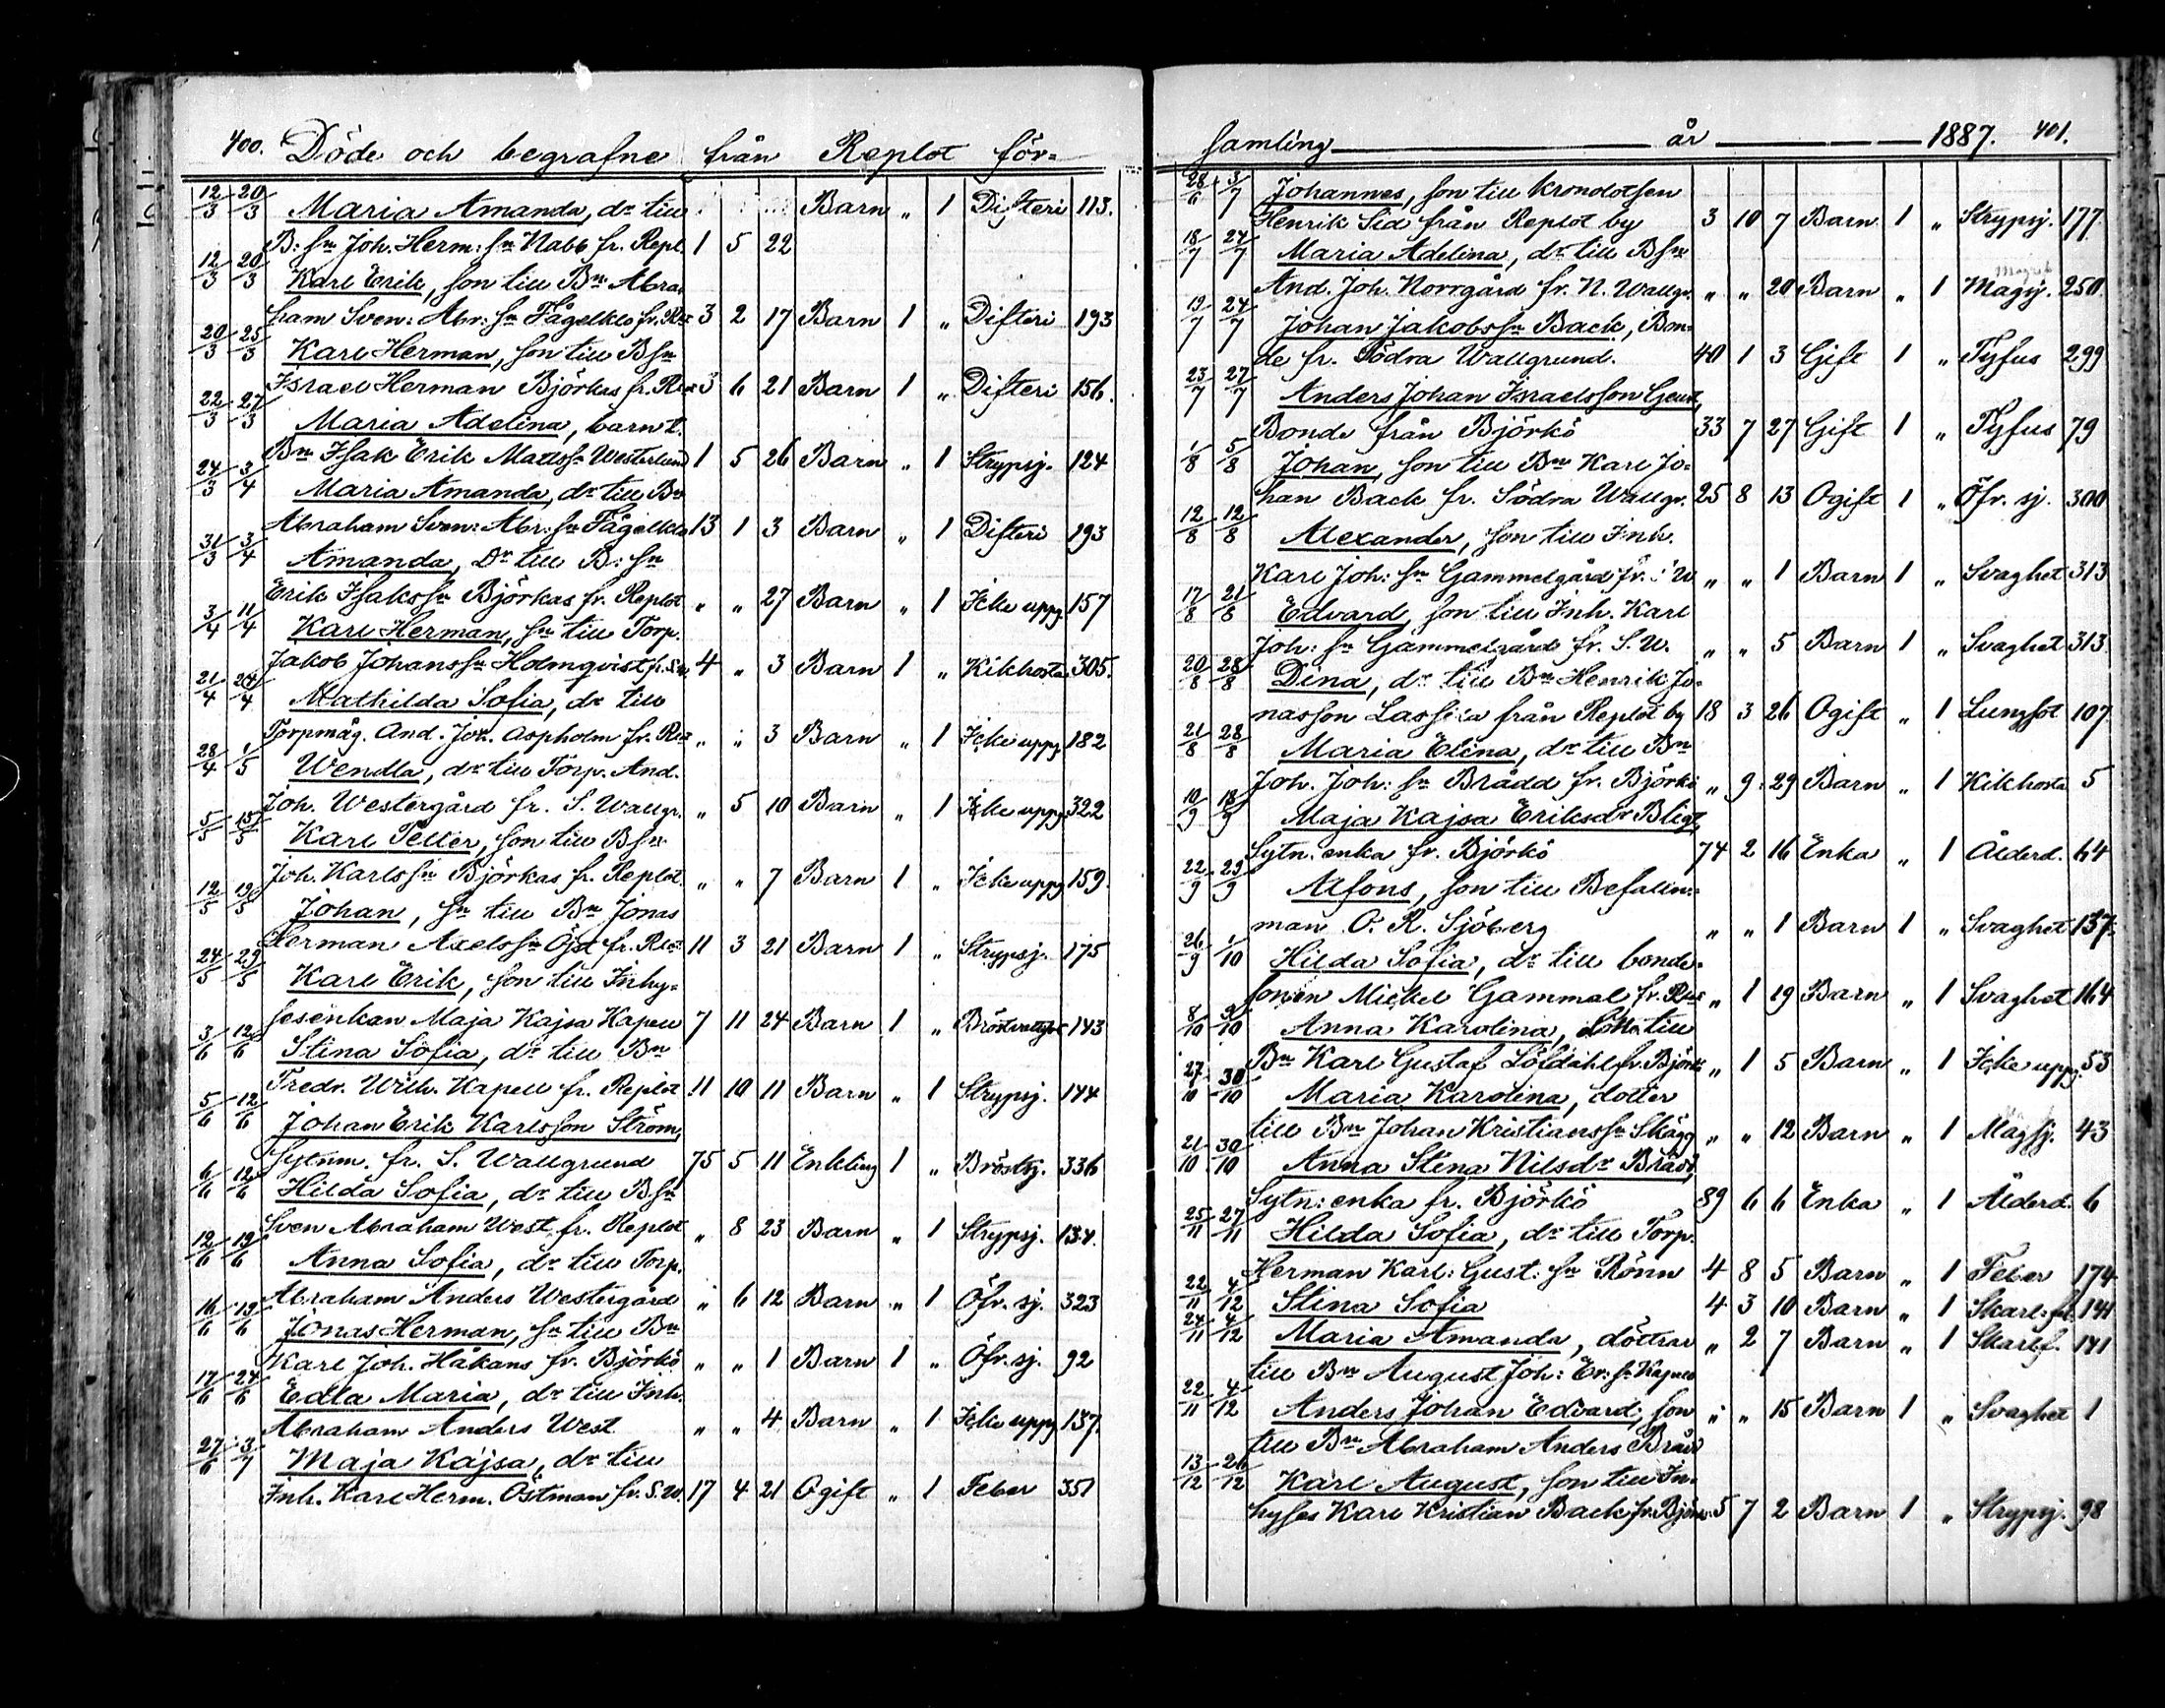 400. Döde och begrafne från Replot för-
12/3 20/3 Maria Amanda, dr till Barn " 1 Difteri 113.
B: sn Joh. Herm: sn Nabb fr. Repl. 1 5 22
12/3 20/3 Karl Erik, son till Bn Abra-
ham Sven: Abr: sn Fågelklo fr. 3 2 17 Barn 1 " Difteri 193
20/3 25/3 Karl Herman, son till Bsn
Israel Herman Björkas fr. 3 6 21 Barn 1 " Difteri 156.
22/3 27/3 Maria Adelina, barn t.
Bn Isak Erik Matssn Westerlund 1 5 26 Barn " 1 Strypsj. 124
24/3 3/4 Maria Amanda, dr till Bn
Abraham Sven: Abr: sn Fågelklo 13 1 3 Barn " 1 Difteri 193
31/3 3/4 Amanda, Dr till B: sn
Erik Isakssn Björkas fr. Replot " " 27 Barn " 1 Icke uppg. 157
3/4 11/4 Karl Herman, sn till Torp.
Jakob Johanssn Holmqvist fr. S.W. 4 " 3 Barn 1 " Kikhosta 305.
21/4 24/4 Mathilda Sofia, dr till
Torpmåg. And. Joh. Aspholm fr. " " 3 Barn " 1 Icke uppg. 182
28/4 1/5 Wendla, dr till Torp. And.
Joh. Westergård fr. S. Wallgr. " 5 10 Barn " 1 Icke uppg. 322
5/5 15/5 Karl Petter, son till Bsn
Joh. Karlssn Björkas fr. Replot " " 7 Barn 1 " Icke uppg. 159.
12/5 19/5 Johan, sn till Bn Jonas
Herman Axelssn Öjst fr. 11 3 21 Barn 1 " Strypsj. 175
24/5 29/5 Karl Erik, son till Inhy-
sesenkan Maja Kajsa Kapell 7 11 24 Barn 1 " 143
3/6 12/6 Stina Sofia, dr till Bn
Fredr. Wilh. Kapell fr. Replot 11 10 11 Barn " 1 Strypsj. 144
5/6 12/6 Johan Erik Karlsson Ström,
Sytnm. fr. S. Wallgrund 75 5 11 Enkling 1 " Bröstsj. 336
6/6 12/6 Hilda Sofia, dr till Bsn
Sven Abraham West fr. Replot " 8 23 Barn " 1 Strypsj. 134.
12/6 19/6 Anna Sofia, dr till Torp.
Abraham Anders Westergård " 6 12 Barn " 1 Öfr. sj. 323
16/6 19/6 Jonas Herman, sn till Bn
Karl Joh. Håkans fr. Björkö " " 1 Barn 1 " Öfr. sj. 92
17/6 24/6 Edla Maria, dr till Inh.
Abraham Anders West " " 4 Barn " 1 Icke uppg. 137.
27/6 3/7 Maja Kajsa, dr till
Inh. Karl Herm. Östman fr. S.W. 17 4 21 Ogift " 1 Feber 351
samling år 1887. 401.
28/6 3/7 Johannes, son till Kronolotsen
Henrik Sid från Replot by 3 10 7 Barn 1 " Strypsj. 177.
18/7 24/7 Maria Adelina, dr till Bsn
And. Joh. Norrgård fr. N. Wallgr. " " 20 Barn " 1 Magsj. 250.
19/7 24/7 Johan Jakobssn Back, Bon-
de fr. Södra Wallgrund. 40 1 3 Gift 1 " Tyfus 299
23/7 27/7 Anders Johan Israelsson
Bonde från Björkö 33 7 27 Gift 1 " Tyfus 79
1/8 5/8 Johan, son till Bn Karl Jo-
han Back fr. Södra Wallgr. 25 8 13 Ogift 1 " Öfr. sj. 300
12/8 12/8 Alexander, son till Inh.
Karl Joh: sn Gammelgård fr. S W " " 1 Barn 1 " Svaghet 313
17/8 21/8 Edvard, son till Inh. Karl
Joh: sn Gammelgård fr. S. W. " " 5 Barn 1 " Svaghet 313
20/8 28/8 Dina, dr till Bn Henrik Jo-
nasson Lassila från Replot by 18 3 26 Ogift " 1 Lungsot 107
21/8 28/8 Maria Elina, dr till Bn
Joh. Joh: sn Brådd fr. Björkö " 9 29 Barn " 1 Kikhosta 5
10/9 18/9 Maja Kajsa Eriksdr
Sytn. enka fr. Björkö 74 2 16 Enka " 1 Ålderd. 64
22/9 23/9 Alfons, son till Befallm:
man O. R. Sjöberg " " 1 Barn 1 " Svaghet 137.
26/9 1/10 Hilda Sofia, dr till bonde-
sonen Mickel Gammal fr. " 1 19 Barn " 1 Svaghet 164
8/10 9/10 Anna Karolina, dott. till
Bn Karl Gustaf Löfdahl fr. Björk. " 1 5 Barn " 1 Icke uppg. 53
27/10 30/10 Maria Karolina, dotter
till Bn Johan Kristianssn Skägg " " 12 Barn " 1 Magsj. 43
21/10 30/10 Anna Stina Nilsdr Brådd,
Sytn: enka fr. Björkö 89 6 6 Enka " 1 Ålderd. 6
25/11 27/11 Hilda Sofia, dr till Torp.
Herman Karl: Gust: sn Rönn 4 8 5 Barn " 1 Feber 174
22/11 4/12 Stina Sofia 4 3 10 Barn " 1 Skarl: feb. 141
24/11 4/12 Maria Amanda, döttrar " 2 7 Barn " 1 Skarlf. 141
till Bn August Joh: Er: sn Kapell
22/11 4/12 Anders Johan Edvard, son " " 15 Barn 1 " Svaghet 1
till Bn Abraham Anders Brådd
13/12 26/12 Karl August, son till In-
hyses Karl Kristian Back fr. Björkö 5 7 2 Barn 1 " Strypsj. 98